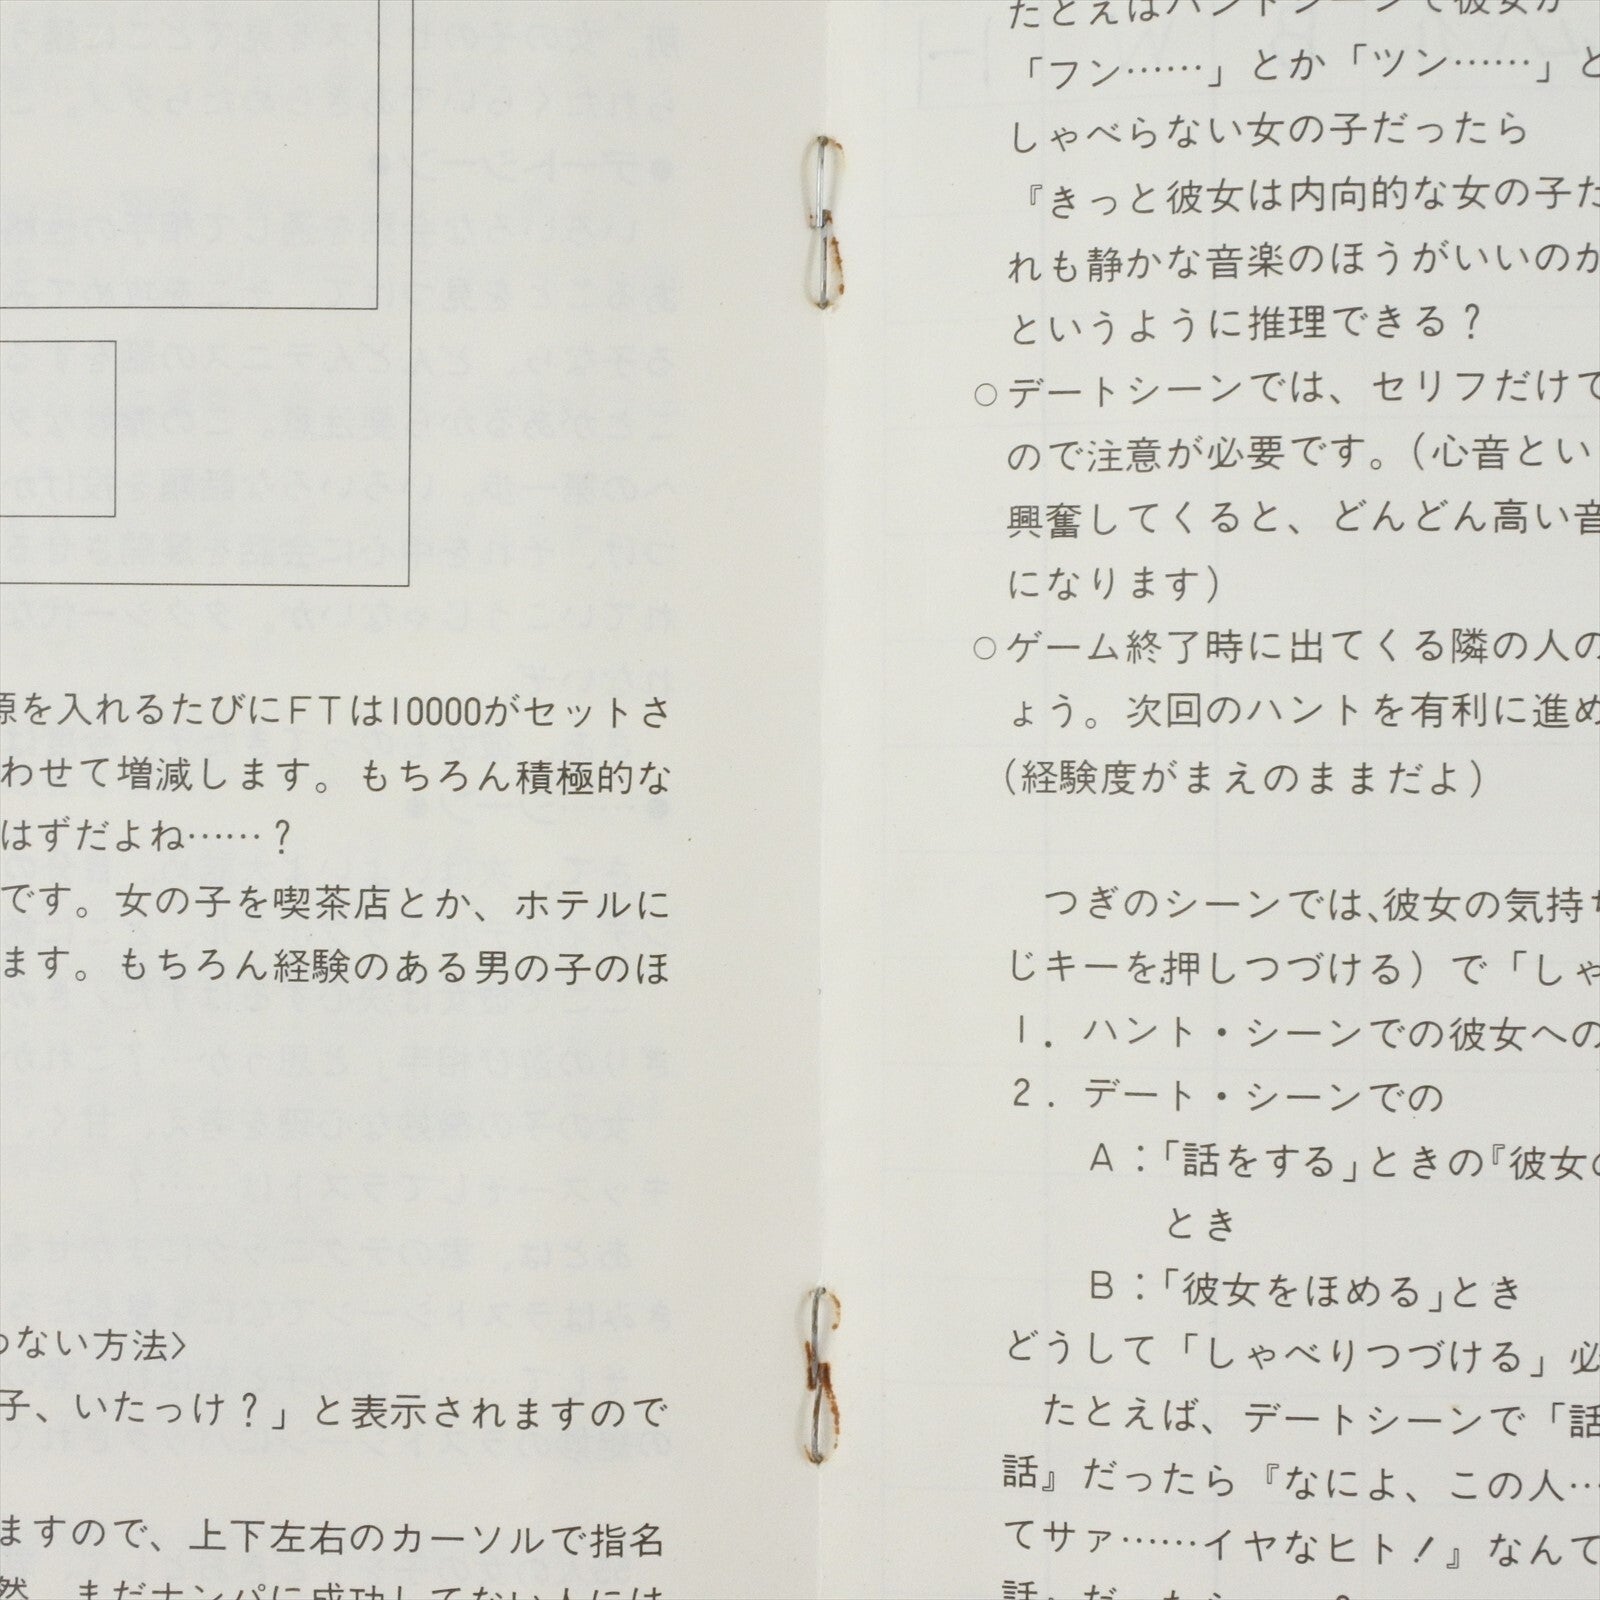 源を入れるたびにFTは10000がセットさ
わせて増減します。もちろん積極的な
はずだよね……？
です。女の子を喫茶店とか、ホテルに
ます。もちろん経験のある男の子のほ
ない方法〉
子、いたっけ？」と表示されますので
ますので、上下左右のカーソルで指名
然、まだナンパに成功してない人には
たとえばハントシーンで彼女が
「フン……」とか「ツン……」と
しゃべらない女の子だったら
『きっと彼女は内向的な女の子だ
れも静かな音楽のほうがいいのか
というように推理できる？
○デートシーンでは、セリフだけで
ので注意が必要です。（心音とい
興奮してくると、どんどん高い音
になります）
○ゲーム終了時に出てくる隣の人の
ょう。次回のハントを有利に進め
（経験度がまえのままだよ）
つぎのシーンでは、彼女の気持ち
じキーを押しつづける）で「しゃ
1．ハント・シーンでの彼女への
2．デート・シーンでの
A：「話をする」ときの『彼女の
とき
B：「彼女をほめる」とき
どうして「しゃべりつづける」必
たとえば、デートシーンで「話
話』だったら『なによ、この人…
てサァ……イヤなヒト！』なんて